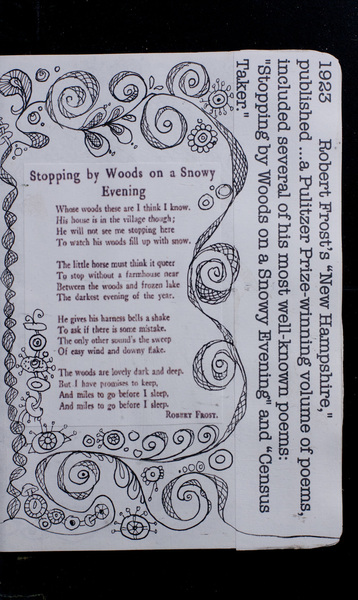 Stopping by Woods on a Snowy
Evening
Whose woods these are I think I know.
His house is in the village though;
He will not see me stopping here
To watch his woods fill up with snow.
The little horse must think it queer
To stop without a farmhouse near
Between the woods and frozen lake
The darkest evening of the year.
He gives his harness bells a shake
To ask if there is some mistake.
The only other sound's the sweep
Of easy wind and downy flake.
The woods are lovely dark and deep.
But I have promises to keep,
And miles to go before I sleep,
And miles to go before I sleep.
ROBERT FROST.
1923 Robert Frost's "New Hampshire,"
published ...a Pulitzer Prize-winning volume of poems,
included several of his most well-known poems:
"Stopping by Woods on a Snowy Evening" and "Census
Taker."